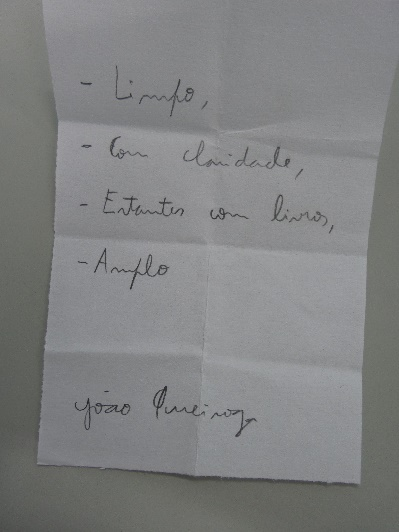 - Limpo,
- Com claridade,
- Estantes com livros,
- Amplo
João Queiroga